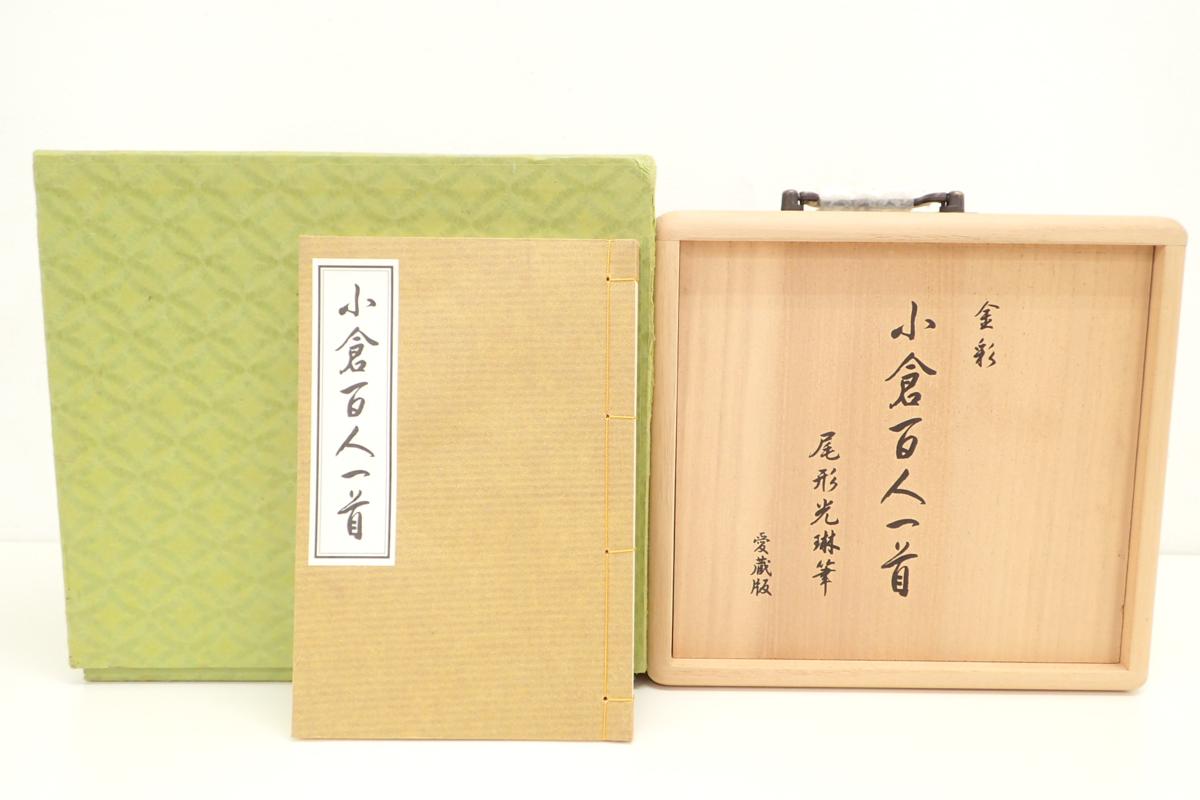 小倉百人一首
金彩
小倉百人一首
尾形光琳筆
愛蔵版